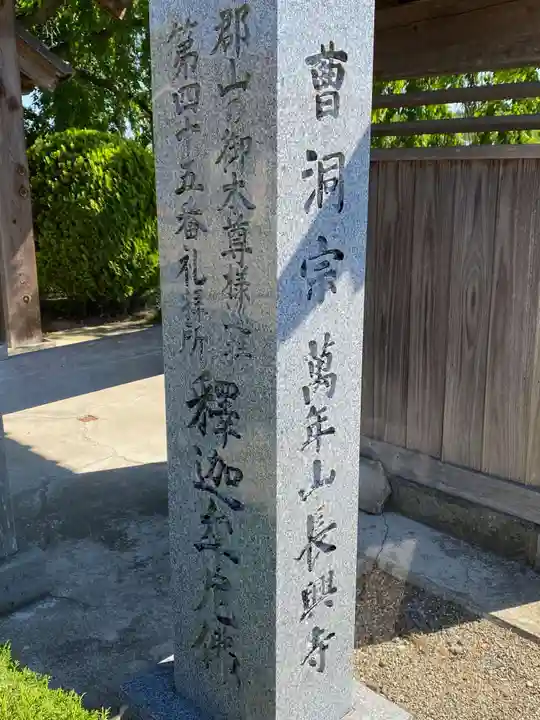 曹洞宗 萬年山長興寺
郡山の御本尊様巡拝
第四十五番礼拝所
釋迦牟尼佛